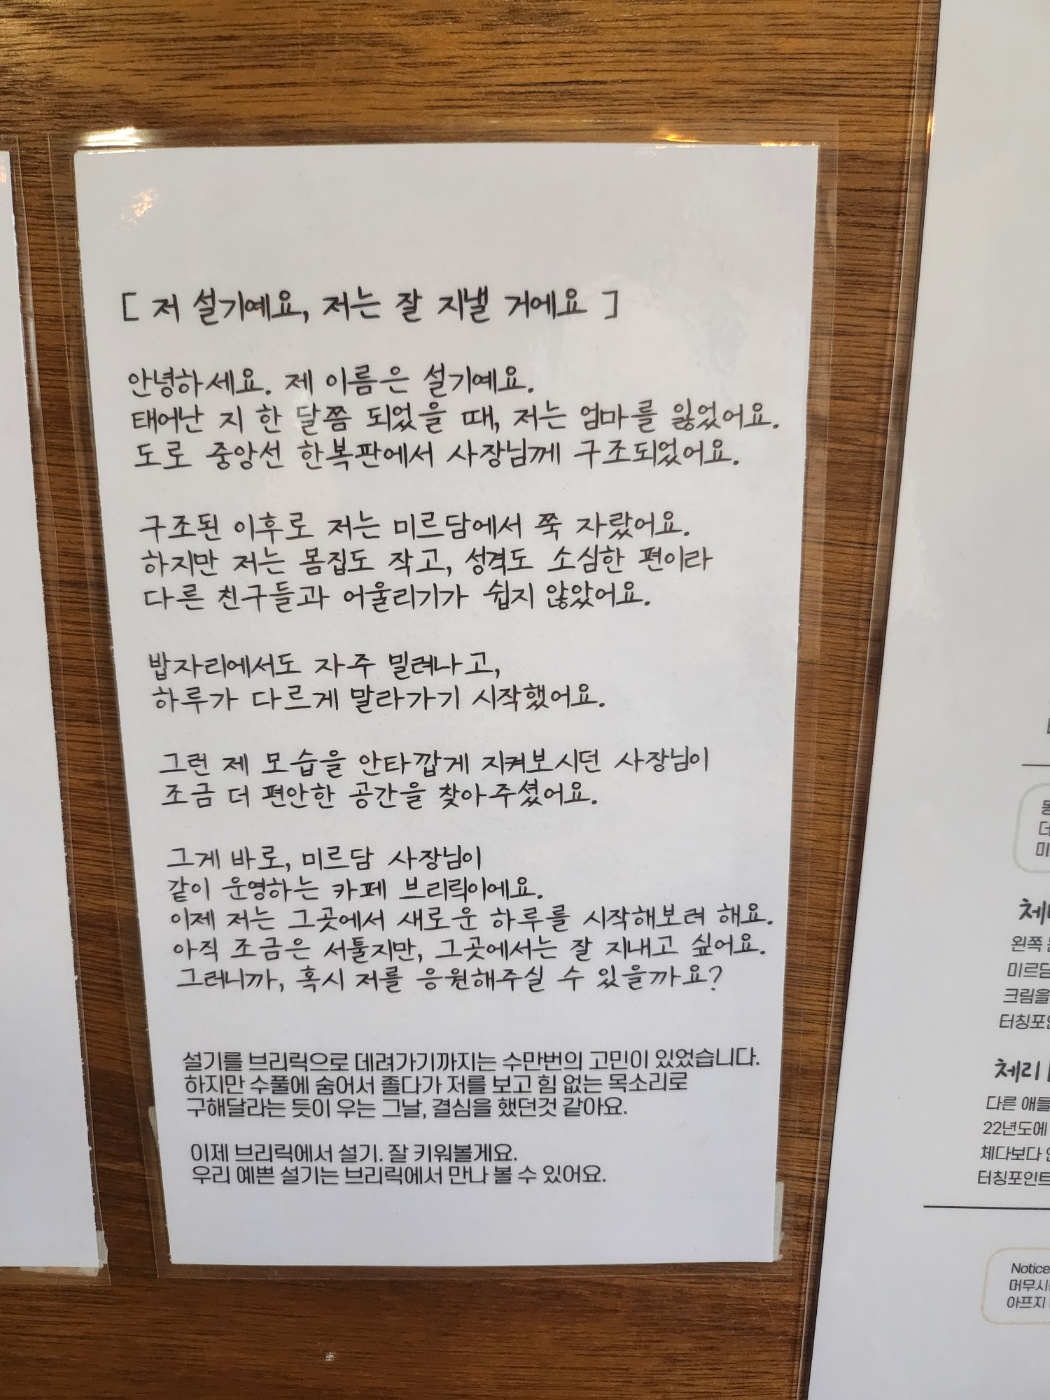 [ 저 설기예요, 저는 잘 지낼 거에요 ]
안녕하세요. 제 이름은 설기예요.
태어난 지 한 달쯤 되었을 때, 저는 엄마를 잃었어요.
도로 중앙선 한복판에서 사장님께 구조되었어요.
구조된 이후로 저는 미르담에서 쭉 자랐어요.
하지만 저는 몸집도 작고, 성격도 소심한 편이라
다른 친구들과 어울리기가 쉽지 않았어요.
밥자리에서도 자주 밀려나고,
하루가 다르게 말라가기 시작했어요.
그런 제 모습을 안타깝게 지켜보시던 사장님이
조금 더 편안한 공간을 찾아주셨어요.
그게 바로, 미르담 사장님이
같이 운영하는 카페 브리릭이에요.
이제 저는 그곳에서 새로운 하루를 시작해보려 해요.
아직 조금은 서툴지만, 그곳에서는 잘 지내고 싶어요.
그러니까, 혹시 저를 응원해주실 수 있을까요?
설기를 브리릭으로 데려가기까지는 수만번의 고민이 있었습니다.
하지만 수풀에 숨어서 졸다가 저를 보고 힘 없는 목소리로
구해달라는 듯이 우는 그날, 결심을 했던것 같아요.
이제 브리릭에서 설기. 잘 키워볼게요.
우리 예쁜 설기는 브리릭에서 만나 볼 수 있어요.
왼쪽
미르담
크림을
터칭포인
체리
다른 애들
22년도에
체다보다
터칭포인트
Notice
머무시
아프지